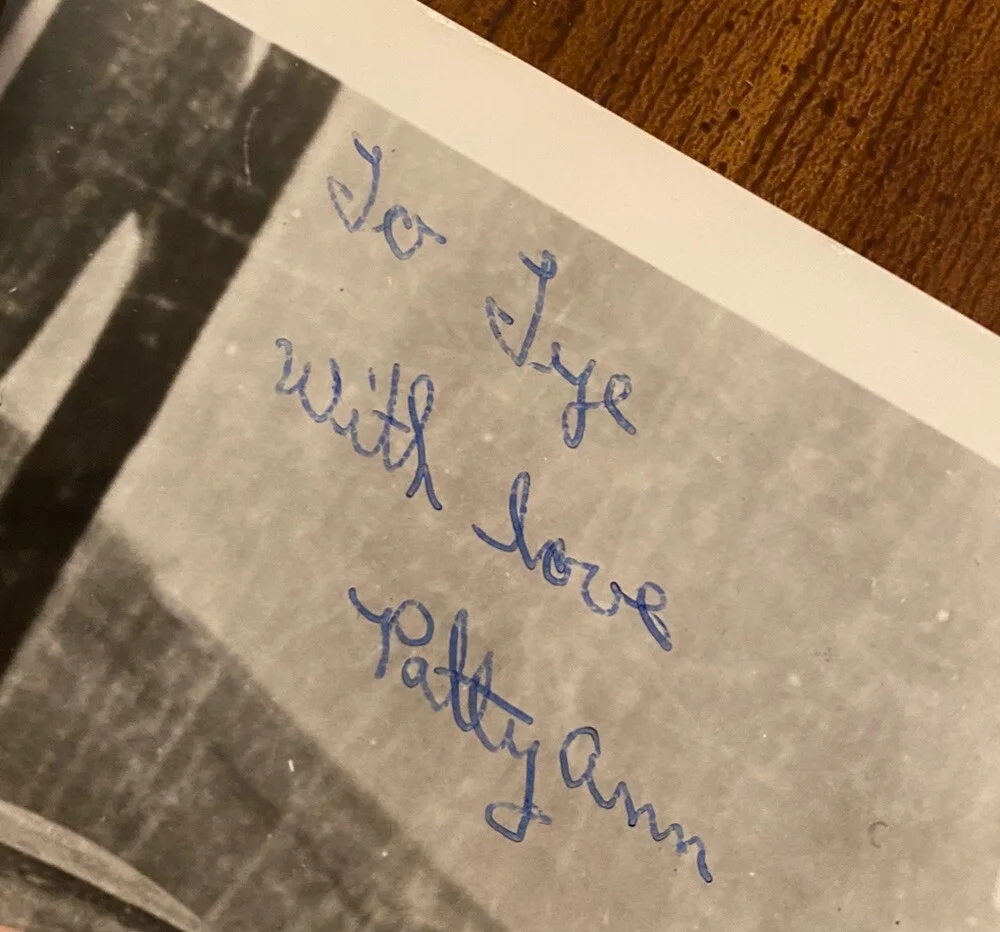 To Tye
With love
Patty Ann